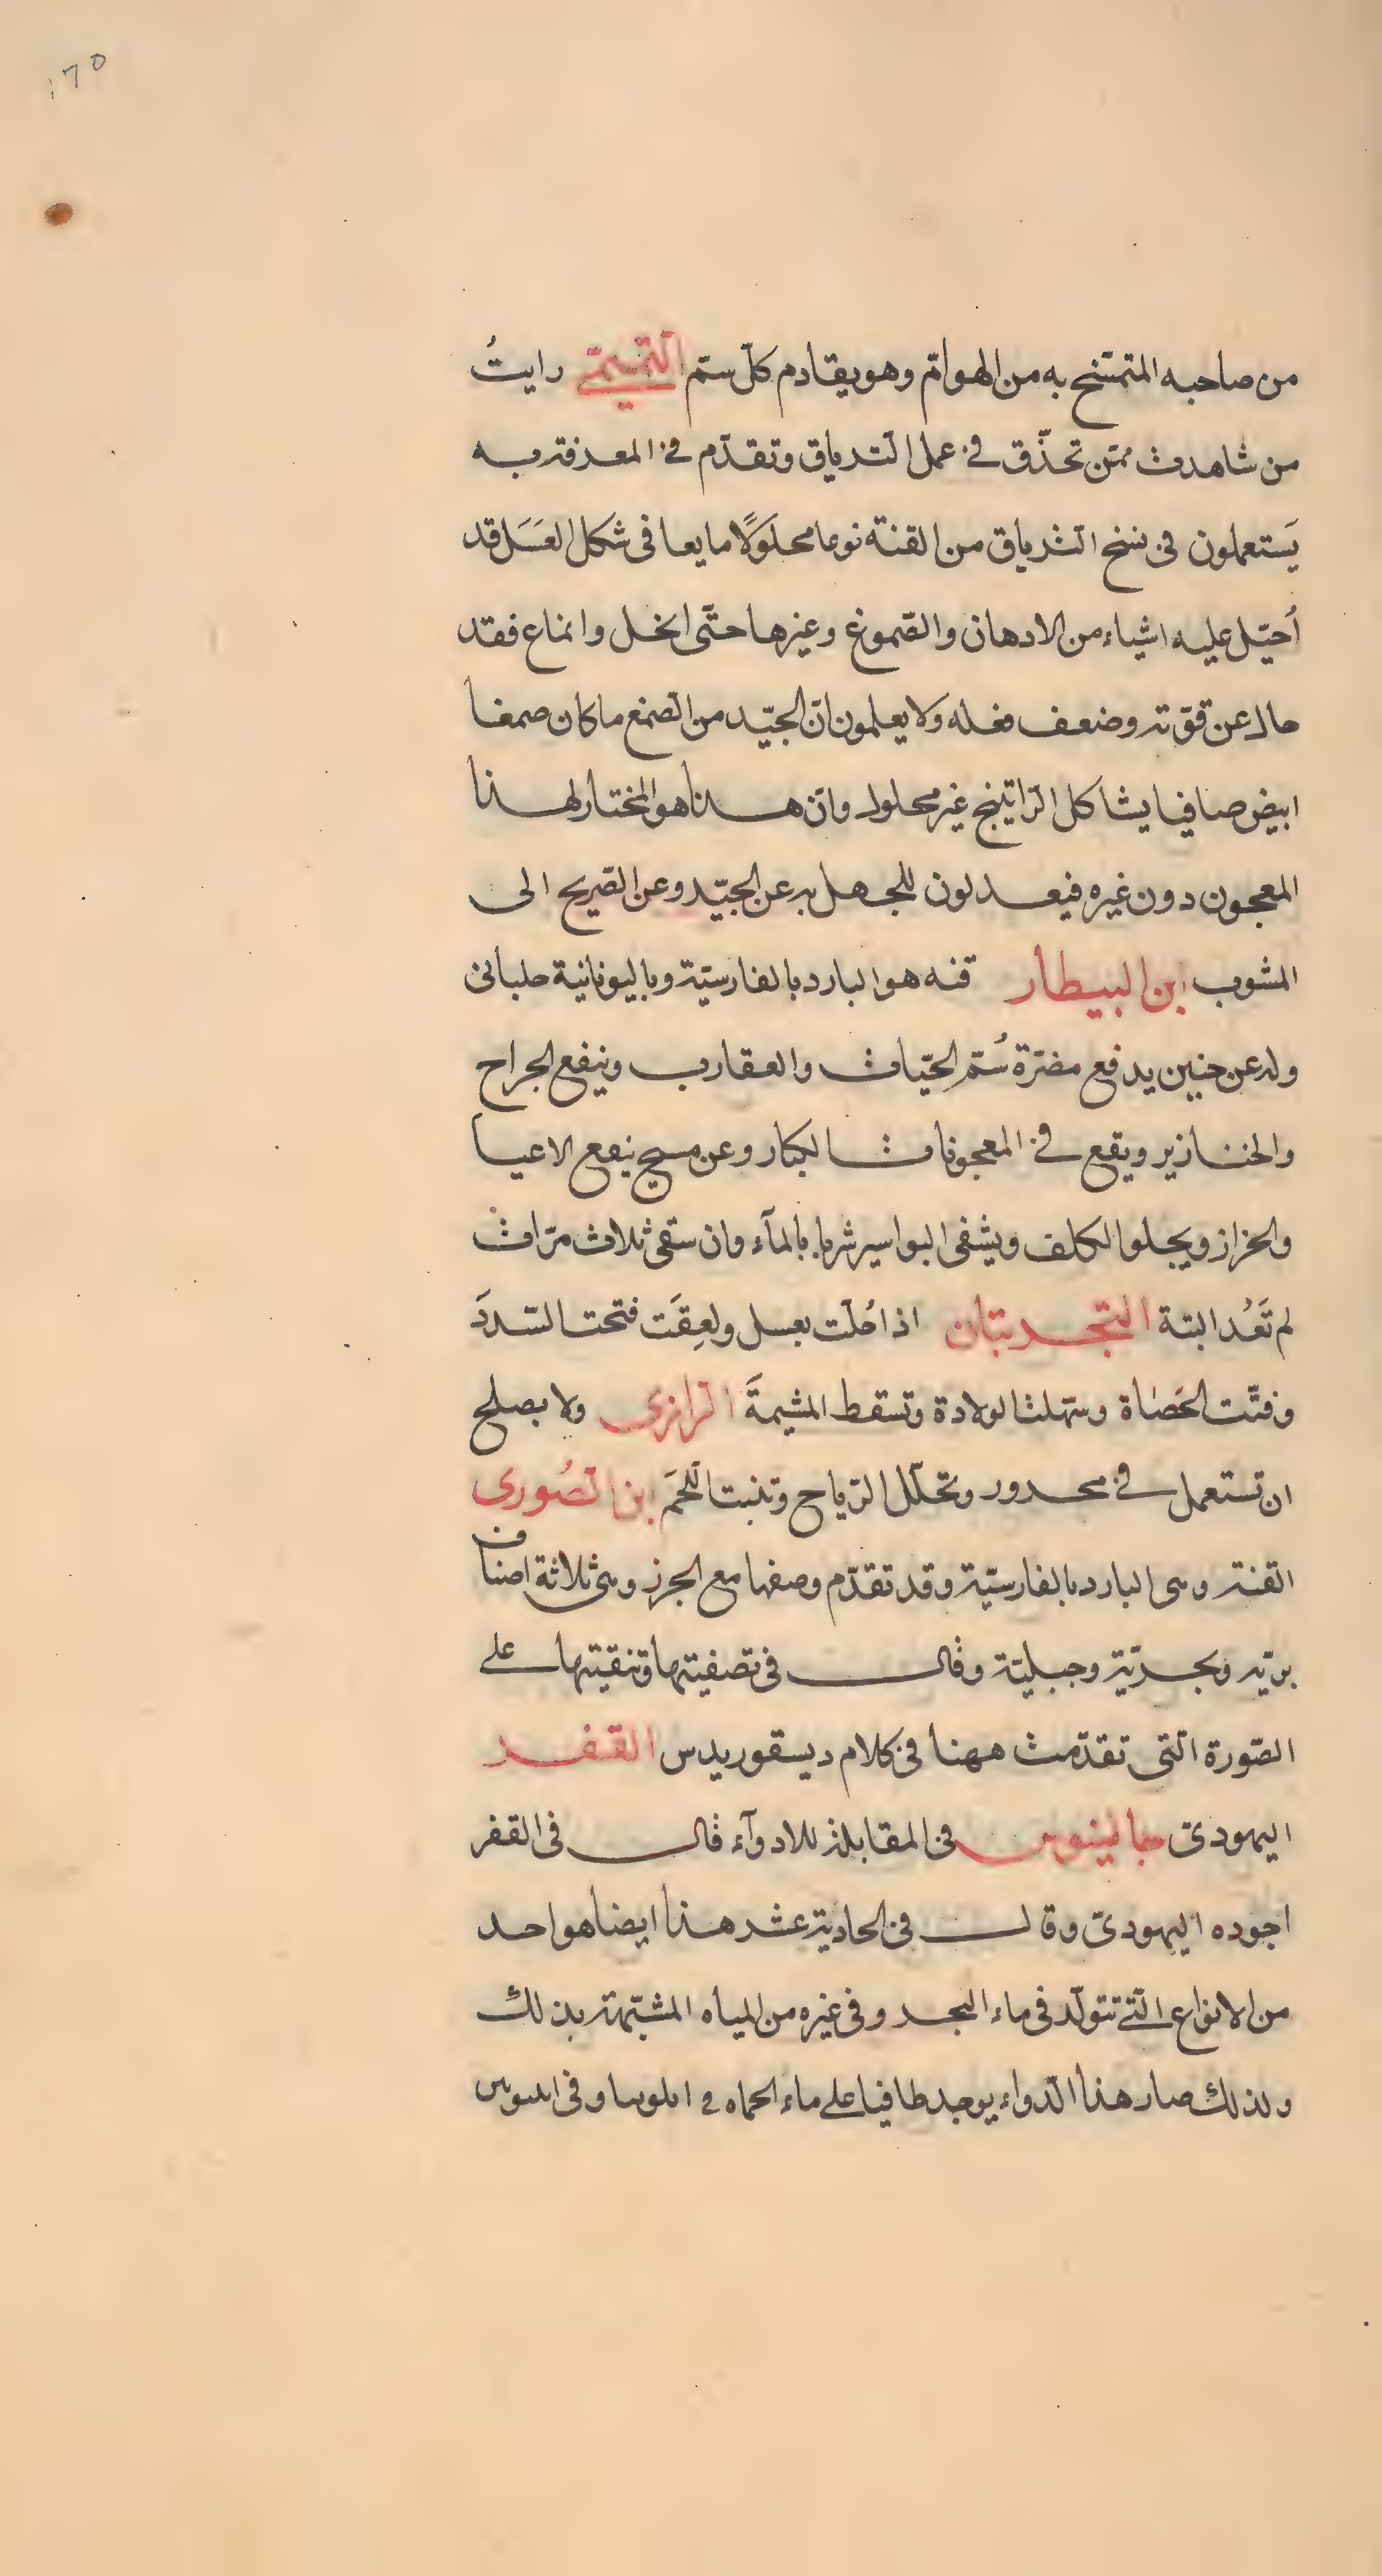 ١٧٥
من صاحبه المتمسّح به من الهوامّ وهو يقادم كلّ سمّ التميمىّ رايتُ
من شاهدت ممّن تحذّق فى عمل الترياق وتقدّم فى المعرفة به
يَستعملون فى نسخ الترياق من القنة نوعا محلَولًا مايعا فى شكل العَسَل قد
أحيّل عليه اشياء من الادهان والصّموغ وغيرها حتّى انحل وانماع فقد
حال عن قوّته وضعف فعله ولا يعلمون انّ الجيّد من الصمغ ما كان صمغا
ابيض صافيا يشاكل الرّاتينج غير محلول وانّ هذا هو المختار لهذا
المعجون دون غيره فيعدلون للجهل به عن الجيّد وعن الصّريح الى
المشوب ابن البيطار قنه هو البارد بالفارسيّة وباليونانية حلبانى
وله عن حنين يدفع مضرّة سُمّ الحيّات والعقارب وينفع الجراح
والخنازير ويقع فى المعجونات الكبار وعن مسيح ينفع الاعيا
والحزاز ويجلوا الكلف ويشفى البواسير شربا بالمآء وان سقى ثلاث مرّات
لم تَعُد البتة التجربتان اذا حُلّت بعسل ولعِقَت فتحت السّددَ
وفتّت الحَصَاة وسهّلت الولادة وتسقط المشيمةَ الرازى ولا يصلح
ان تستعمل فى محرور وتحلّل الرّياح وتنبت اللّحمَ ابن الصُورى
القنة وهى البارد بالفارسيّة وقد تقدّم وصفها مع الجزر وهى ثلاثة اصناف
بريّه وبحريّة وجبليّة وقال فى تصفيتها وتنقيتها على
الصّورة الّتى تقدّمت ههنا فى كلام ديسقوريدس القفر
اليهودىّ جالينوس فى المقابلة للادوآء قال فى القفر
اجوده اليهودىّ وقال فى الحادية عشر هذا ايضا هو احد
من الانواع الّتى تتولّد فى ماء البحر وفى غيره من المياه المشبّهة بذلك
ولذلك صار هذا الدّواء يوجد طافيا على ماء الحماه فى وفى